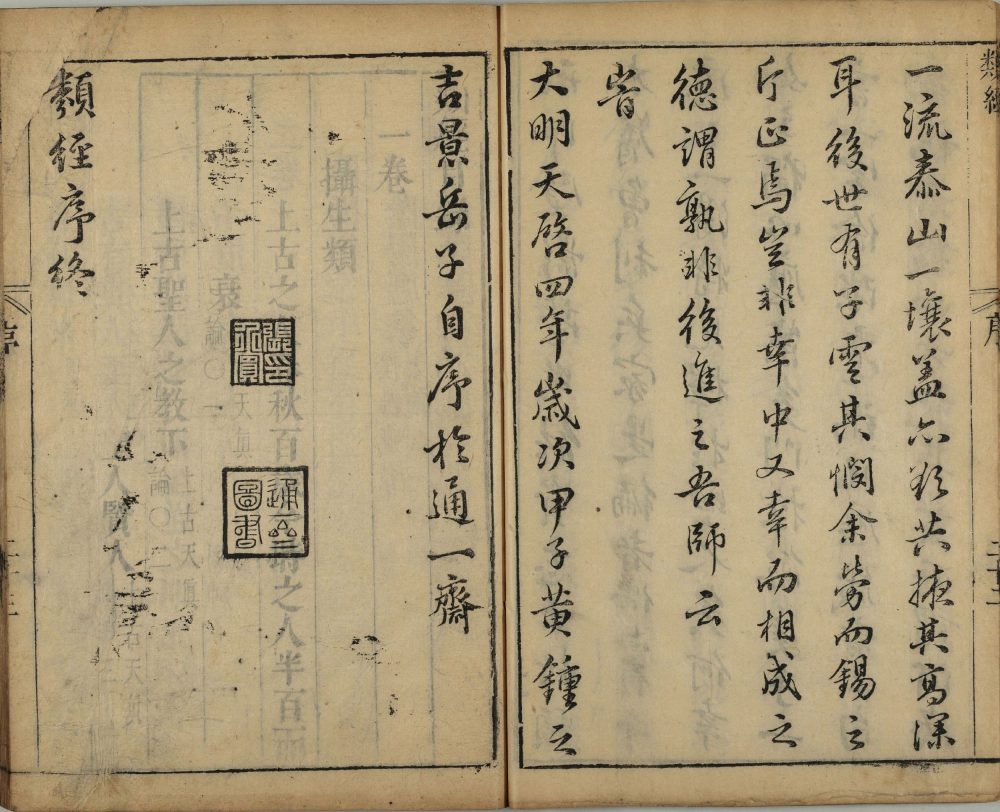 類經
一流泰山一壤盖亦欲共掖其高深
耳後世有子雲其憫余勞而錫之
斤正焉豈非幸中又幸而相成之
德謂孰非後進之吾師云
旹
大明天啓四年歲次甲子黃鍾之
吉景岳子自序於通一齋
類經序終
序